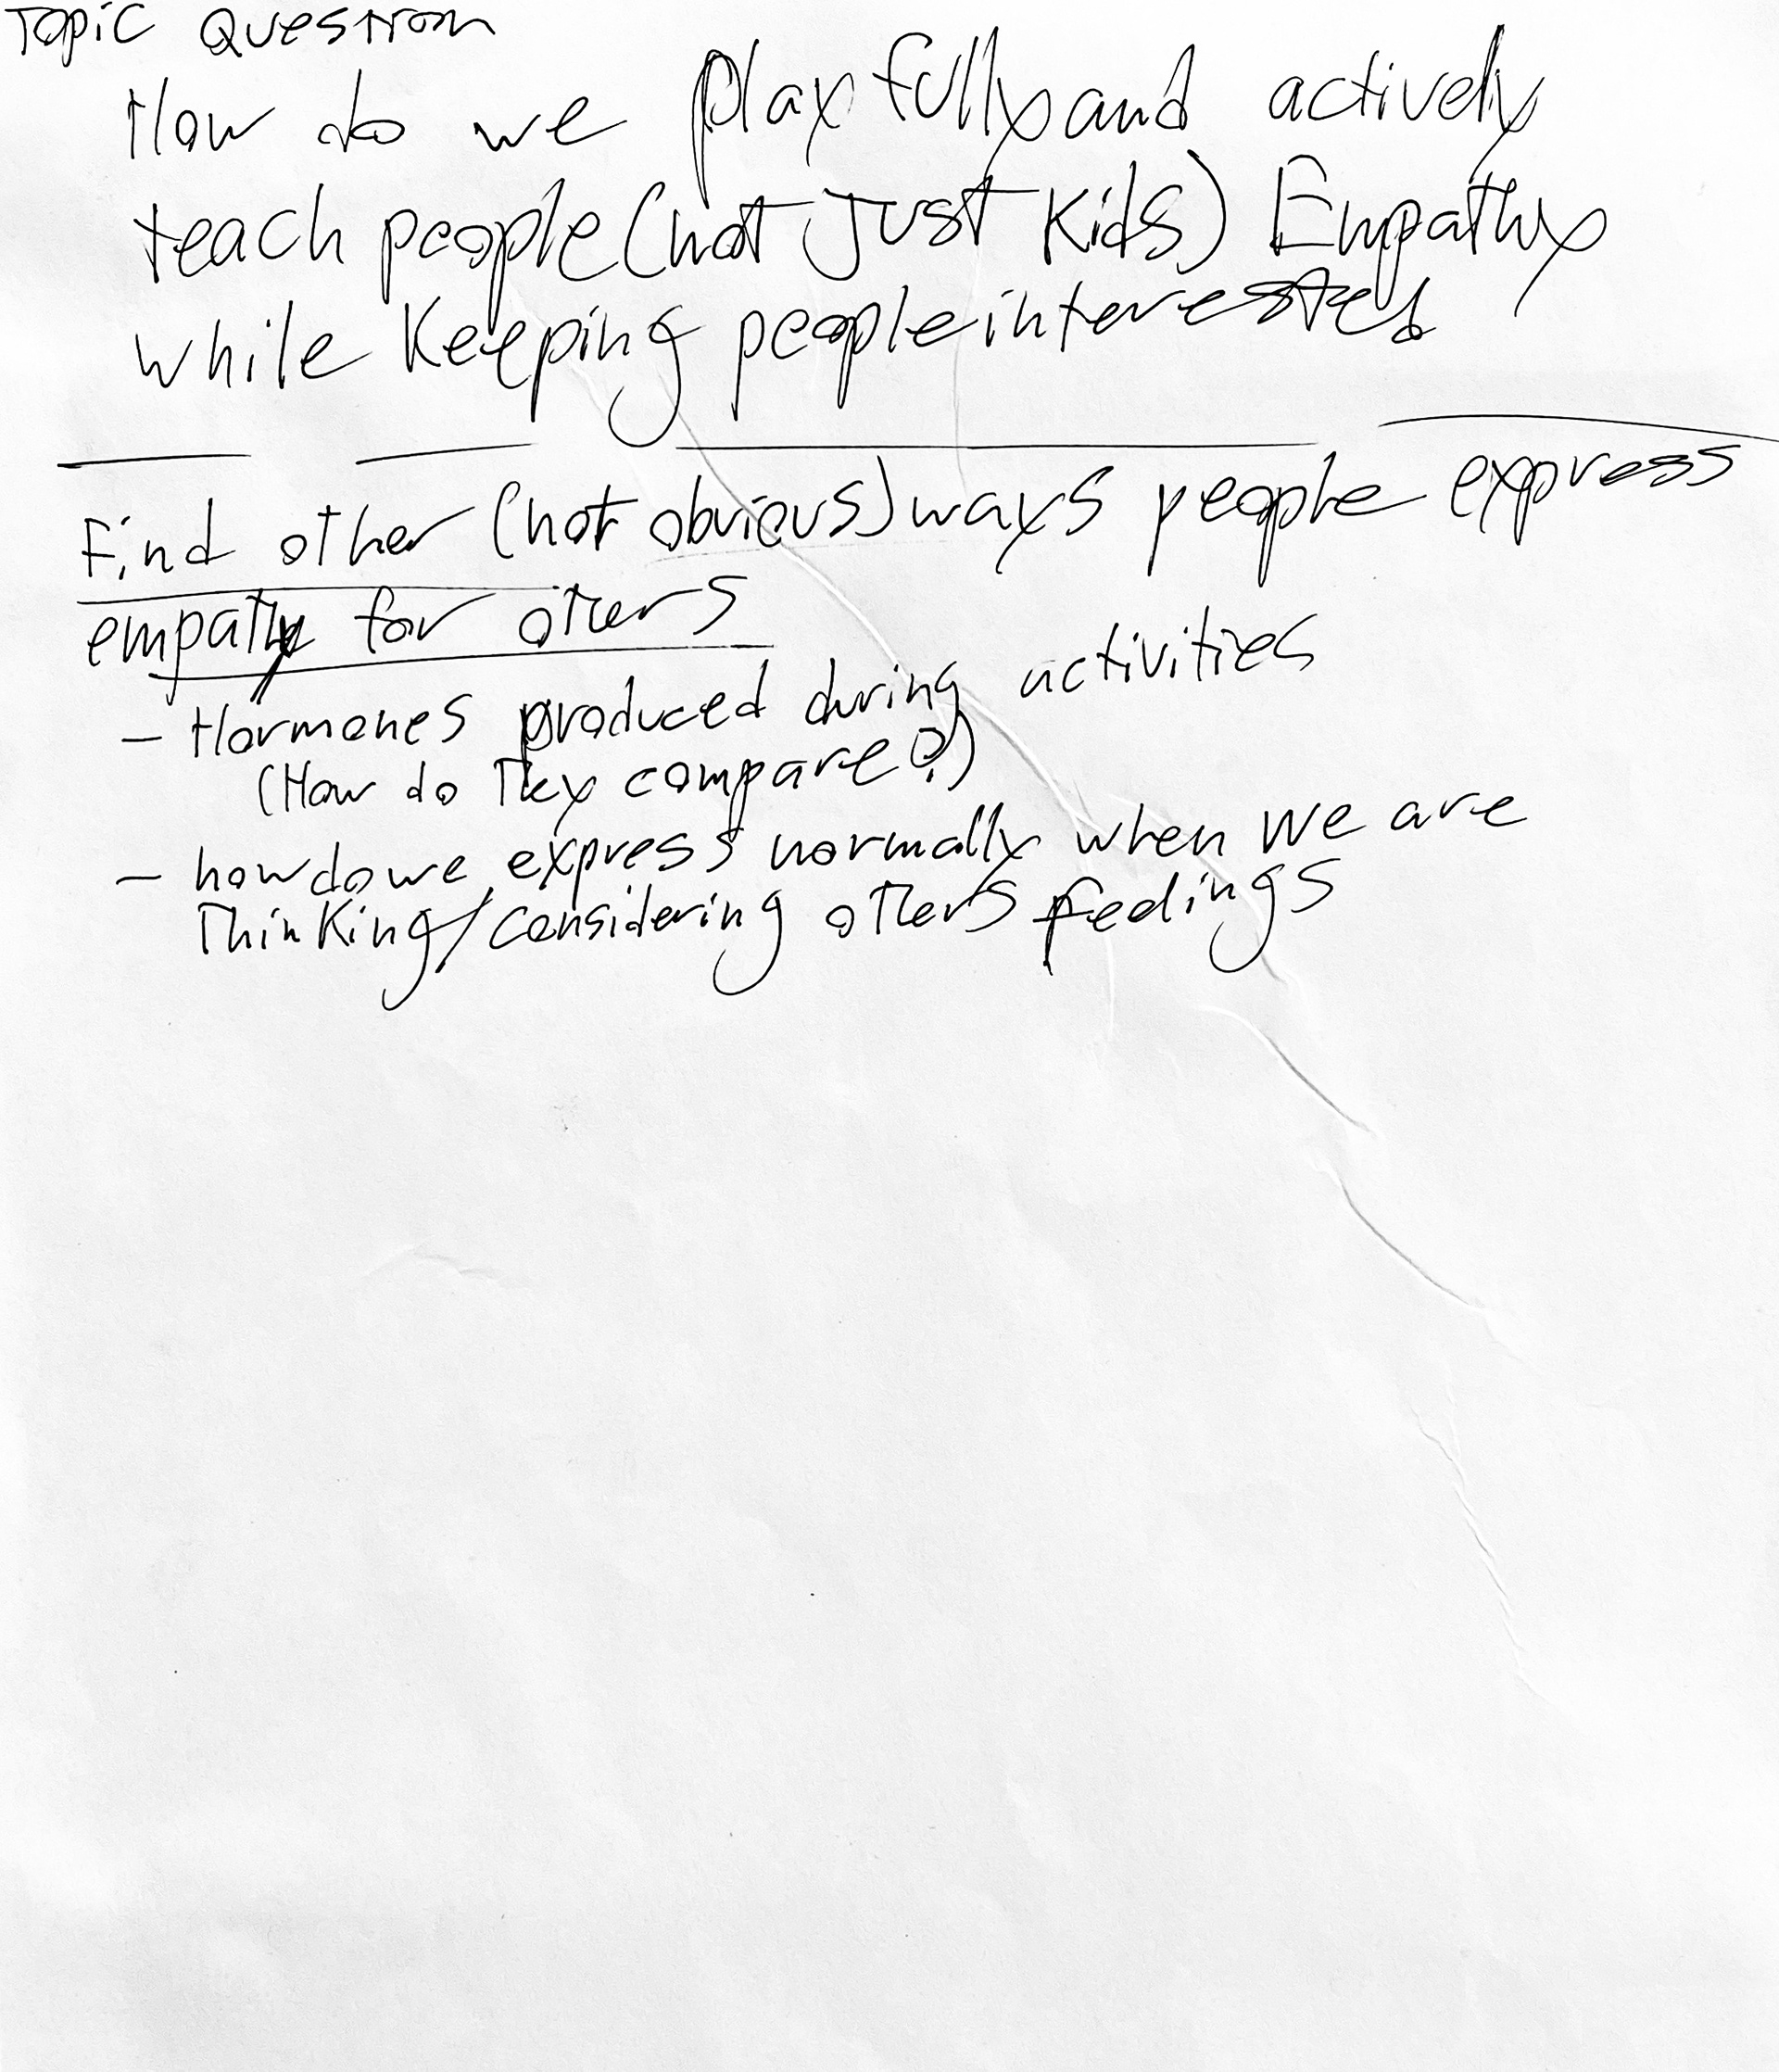 Topic Question
How do we playfully and actively
teach people (not Just Kids) Empathy
while Keeping people interested
Find other (not obvious) ways people express
empathy for others
- Hormones produced during activities
(How do They compare?)
- how do we express normally when we are
Thinking/considering others feelings